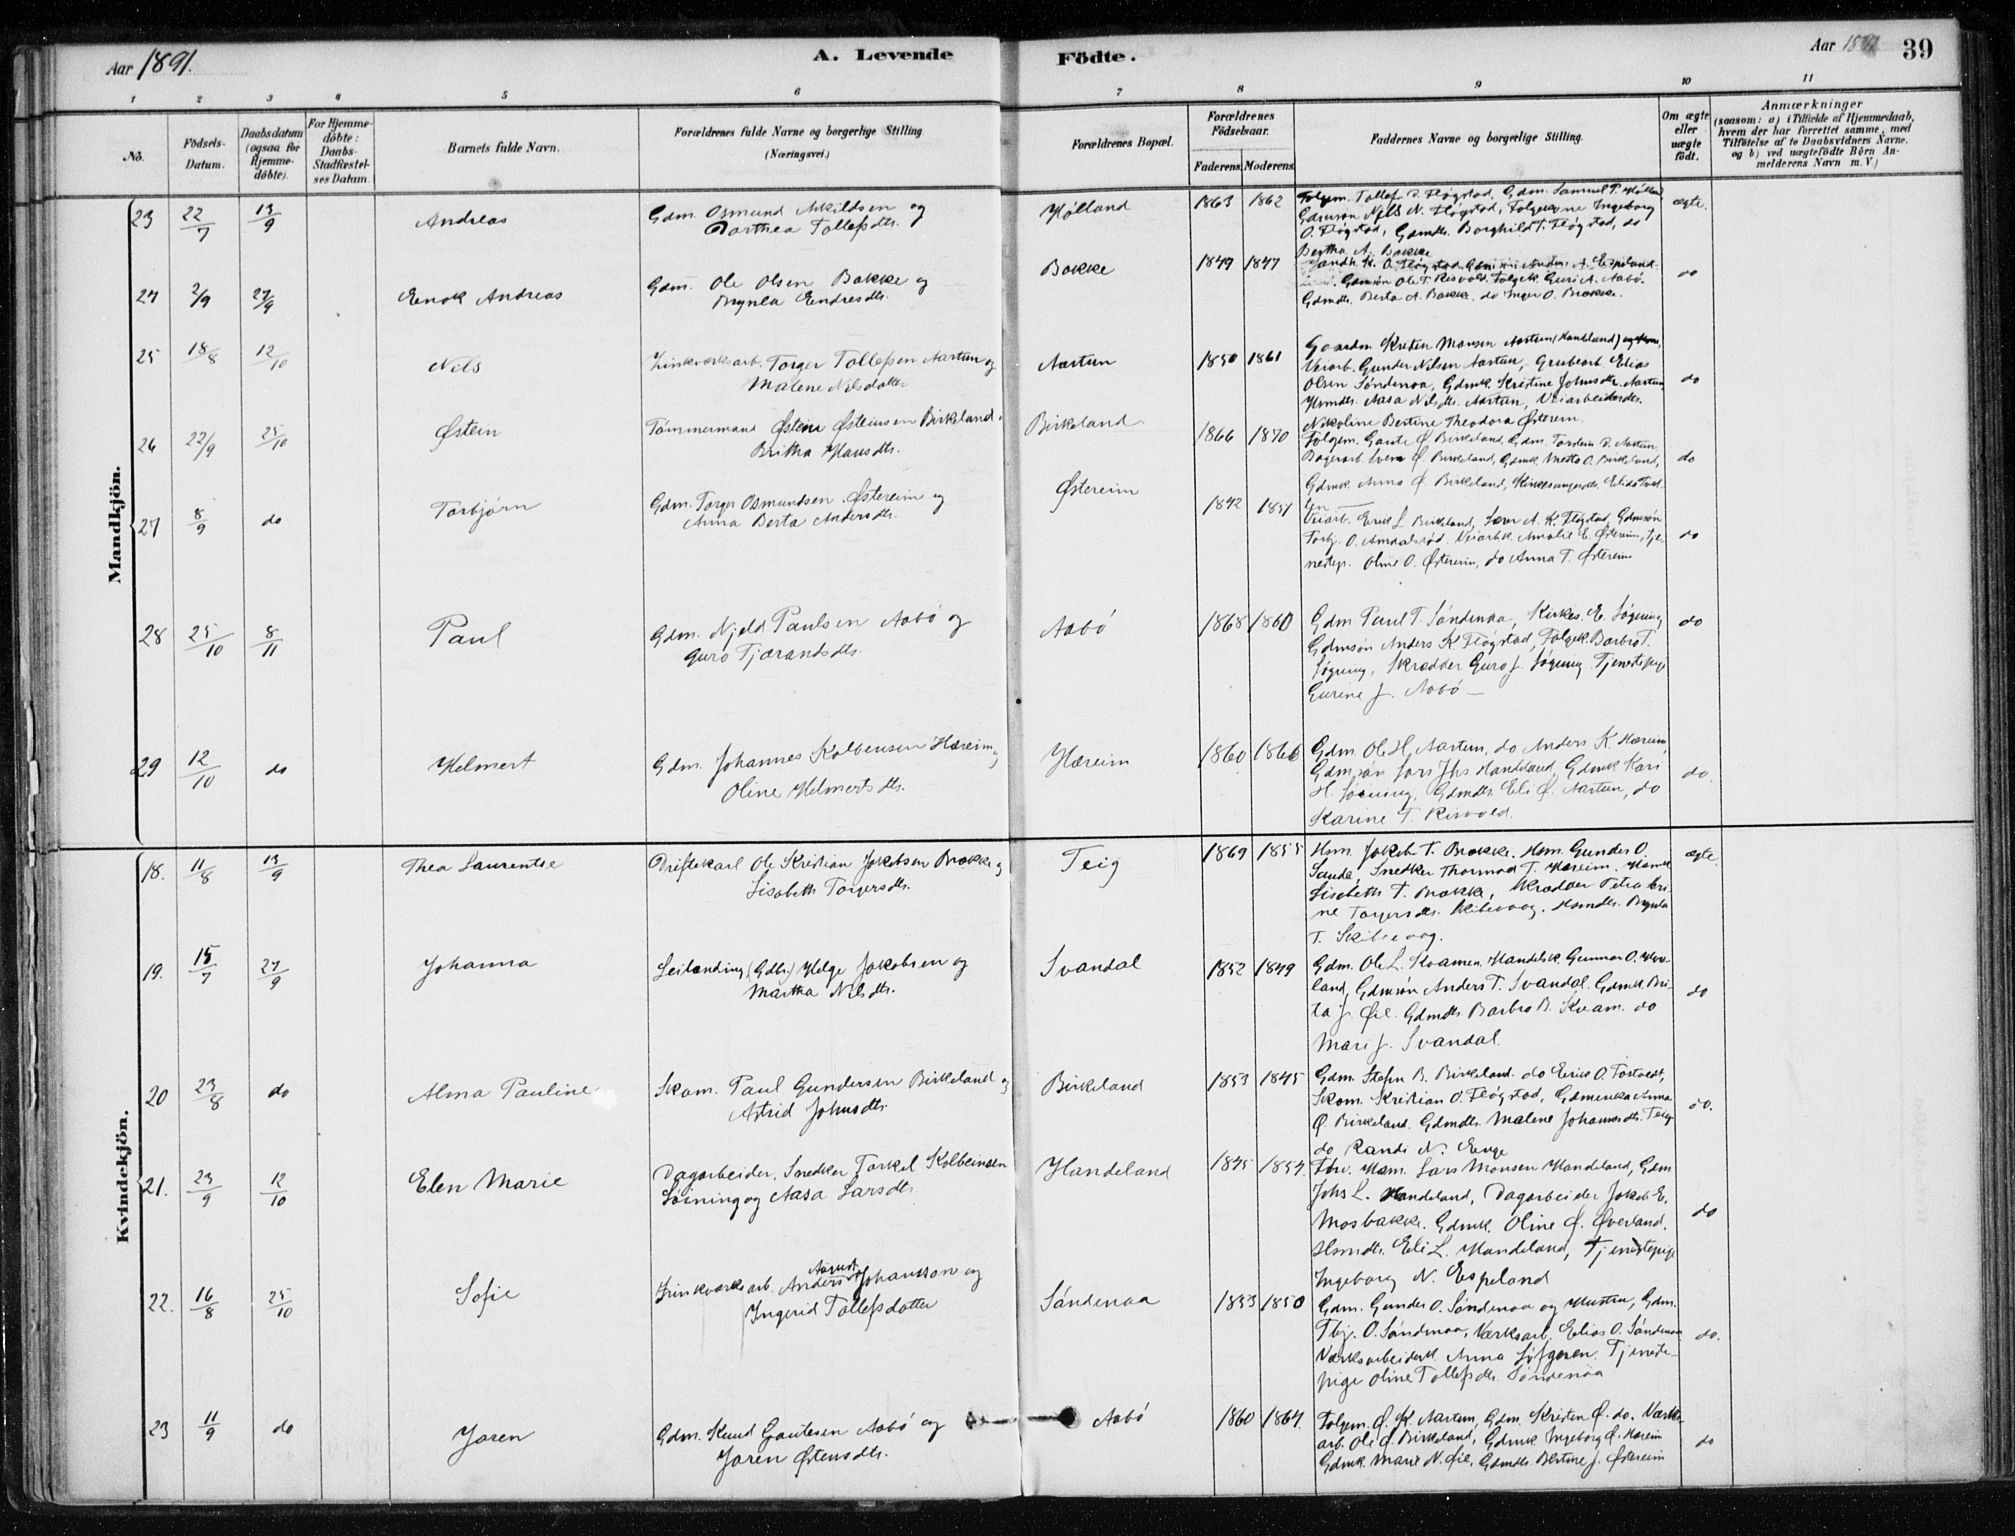 Aar 1891.
A. Levende Födte.
Aar 1891
39
1 2 3 4 5 6 7 8 9 10 11
No.
Födsels-Datum.
Daabsdatum (ogsaa for Hjemme-döbte).
For Hjemme-döbte: Daabs-Stadfæstel-ses Datum.
Barnets fulde Navn.
Forældrenes fulde Navne og borgerlige Stilling
(Næringsvei.)
Forældrenes Bopæl.
Forældrenes Födselsaar.
Faderens. Moderens.
Faddernes Navne og borgerlige Stilling.
Om ægte eller uægte födt.
Anmærkninger
(saasom: a) i Tilfælde af Hjemmedaab,
hvem der har forrettet samme, med
Tilföielse af to Daabsvidners Navne.
og b) ved uægtefödte Börn An-
melderens Navn m. V.)
Mandkjön.
23 22/7 13/9 Andreas Gdm. Osmund Askildsen og
Dorthea Tollefsdtr.
Hölland 1863 1862
Folgem. Tollef T. Flögstad, Gdm. Samuel T. Hölland
Gdmsön Nils N. Flögstad, Folgekone Ingeborg
O. Flögstad, Gdmdtr. Borghild T. Flögstad, do
Bertha A. Bakke
ægte.
24 2/9 27/9 Enok Andreas Gdm. Ole Olsen Bakke og
Brynla Endresdtr.
Bakke 1849 1847
Landh. K. O. Flögstad, Gdmsön Anders A. Espeland
Gdmsön Ole T. Risvold, Folgek. Guri A. Aabö.
Gdmdtr. Berta A. Bakke, do Inger O. Brakke.
do
25 18/8 12/10 Nils Zinkværksarb. Torger Tollefsen Aartun og
Malene Nilsdatter
Aartun 1850 1861
Gaardm. Kristen Monsen Aartun (Handeland)
Veiarb. Gunder Nilsen Aartun, Grubearb. Elias
Olsen Söndenaa, Gdmk. Kristine Johnsdtr. Aartun
Hsmdtr. Aasa Nilsdtr. Aartun, Veiarbeiderdtr.
Nikoline Bertine Theodora Östereim.
do
26 22/9 25/10 Östein Tömmermand Östein Östeinsen Birkeland
Britha Hansdtr.
Birkeland 1866 1870
Folgem. Gaute Ö. Birkeland, Gdm. Tordein P. Aartun
Bagerarb. Iver Ö. Birkeland, Gdmk. Mette O. Birkeland,
Gdmk. Anna Ö. Birkeland, Kirkesangerdtr. Elida Tvet-
ten
do
27 8/9 do Torbjörn Gdm. Torger Osmundsen Östereim og
Anna Berta Andersdtr.
Östereim 1842 1851
Veiarb. Erik L. Birkeland, Lærer A. K. Flögstad, Gdmsön
Torbj. O. Amdalsrød. Veiarbk. Amalie E. Östereim, Tje-
nestep. Oline O. Östereim, do Anna T. Östereim
do
28 25/10 8/11 Paul Gdm. Njeld Paulsen Aabö og
Guro Tjærandsdtr.
Aabö 1868 1860
Gdm. Paul T. Söndenaa, Kirkes. E. Lögning
Gdmsön Anders K. Flögstad, Folgek. Barbro T.
Lögning, Skrædder Guro J. Lögning Tjenestepige
Gurine J. Aabö —
do
29 12/10 do Helmert Gdm. Johannes Kolbensen Hæreim og
Oline Helmertsdtr.
Hæreim 1860 1866
Gdm. Ole H. Aartun, do Anders K. Hæreim,
Gdmsön Lars Jhs. Handeland, Gdmk. Kari
H. Löining, Gdmdtr. Eli Ö. Aartun, do
Karine T. Risvold.
do.
Kvindekjön.
18. 11/8 13/9 Thea Laurentse Driftekarl Ole Kristian Jakobsen Brakke og
Lisabeth Torgersdtr.
Teig 1869 1855
Hsm. Jakob T. Brakke, Hsm. Gunder O.
Sanda, Snedker Thormod T. Hæreim, Hsmk
Lisabeth T. Brakke, Skrædder Petra Kri-
ne Torgersdtr. Skibevaag. Hsmdtr. Brynla
T. Skibevaag.
ægte.
19. 15/7 27/9 Johanna Leilænding (Gdbr.) Helge Jakobsen og
Martha Nilsdtr.
Svandal 1852 1849
Gdm. Ole L. Kvamen, Handelsk. Gunnar O. Hov-
land, Gdmsön Anders T. Svandal. Gdmk. Bri-
ta J. Öie. Gdmdtr. Barbro B. Kvam. do
Mari J. Svandal.
do
20 23/8 do Alma Pauline Skom. Paul Gundersen Birkeland og
Astrid Johnsdtr.
Birkeland 1853 1845
Gdm. Stefn B. Birkeland. do Eerik O. Tostvedt,
Skom. Kristian O. Flögstad, Gdmenka Anna
Ö. Birkeland. Gdmdtr. Malene Johannesdtr. Teig
do Randi N. Enge
do.
21. 23/9 12/10 Elen Marie Dagarbeider, Snedker Torkel Kolbeinsen
Löining og Aasa Larsdtr.
Handeland 1845 1854.
Forv. Hsm. Lars Monsen Handeland, Gdm
Johs L. Handeland, Dagarbeider Jakob E.
Mosbakke. Gdmk. Oline Ö. Överland.
Hsmdtr. Eli L. Handeland, Tjenestepige
Ingeborg N. Espeland
do
22. 16/8 25/10 Sofie Zinkværksarb. Anders August Johansson og
Ingerid Tollefsdatter
Söndenaa 1853 1850
Gdm. Gunder O. Söndenaa og Hustru, Gdm.
Tbj. O. Söndenaa, Værksarb. Elias O. Söndenaa
Værksarbeiderk. Anna Löfgeren, Tjeneste-
pige Oline Tollefsdtr. Söndenaa
do.
23 11/9 do Joren Gdm. Knud Gautesen Aabö og
Joren Östensdtr.
Aabö 1860 1864.
Folgem. Ö. K. Aartun, Gdm. Kristen Ö. do. Værks-
arb. Ole Ö. Birkeland, Gdmk. Ingeborg Ö. Hæreim
Gdmk. Mari N. Öie, Gdmdtr. Bertine J. Östereim
do